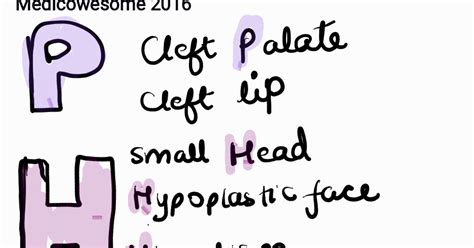 Medicowesome 2016
P
Cleft Palate
Cleft lip
small Head
H
Hypoplastic face